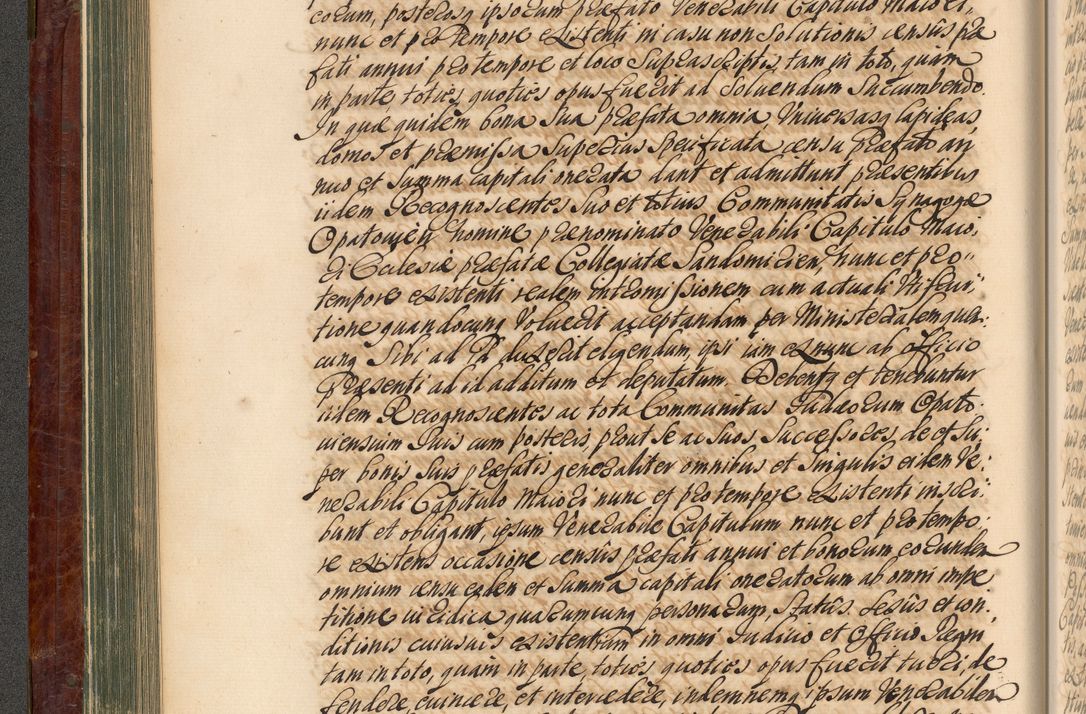 eorum, posterosq ipsorum praefato Venerabili Capitulo Maiori,
nunc et pro tempore existenti in casu non Solutionis census prae
fati annui pro tempore et loco Suprascriptis, tam in toto, quam
in parte toties, quoties opus fuerit ad Soluendum Succumbendo.
In quae quidem bona Sua praefata omnia Vniversasq lapideas
domos et praemissa Superius Specificata censu Praefato an
nuo et Summa capitali onerata dant et admittunt praesentibus
iidem Recognoscentes Suo et totius Communitatis Synagogae
Opatovien nomine praenominato Venerabili Capitulo Maio,
ri Ecclesiae praefatae Collegiatae Sandomirien, nunc et pro"
tempore existenti realem intromissionem cum actuali Vtifrui"
tione quandocunq Voluerit acceptandam per Ministerialem quen:
cunq Sibi ad id duxerit eligendum, ipsi iam ex nunc ab officio
Praesenti ad id additum et deputatum. Debentq et tenebuntur
iidem Recognoscentes ac tota Communitas Iudaeorum Opato:
uiensium Suis cum posteris, prout Se ac Suos Successores, de et Su:
per bonis Suis praefatis generaliter omnibus et Singulis eidem Ve:
nerabili Capitulo Maiori nunc et pro tempore existenti inscri:
bunt et obligant, ipsum Venerabile Capitulum nunc et pro tempo:
re existens occasione census praefati annui et bonorum eorundem
omnium censu eodem et Summa capitali oneratorum ab omni impe
titione iuridica quarumcunq personarum, Status, Sexus et con:
ditionis cuiusuis existentium in omni Iudicio et Officio Regni
tam in toto, quam in parte, toties quoties opus fuerit tueri, de
fendere, euincere, et intercedere, indemnemq ipsum Venerabilem